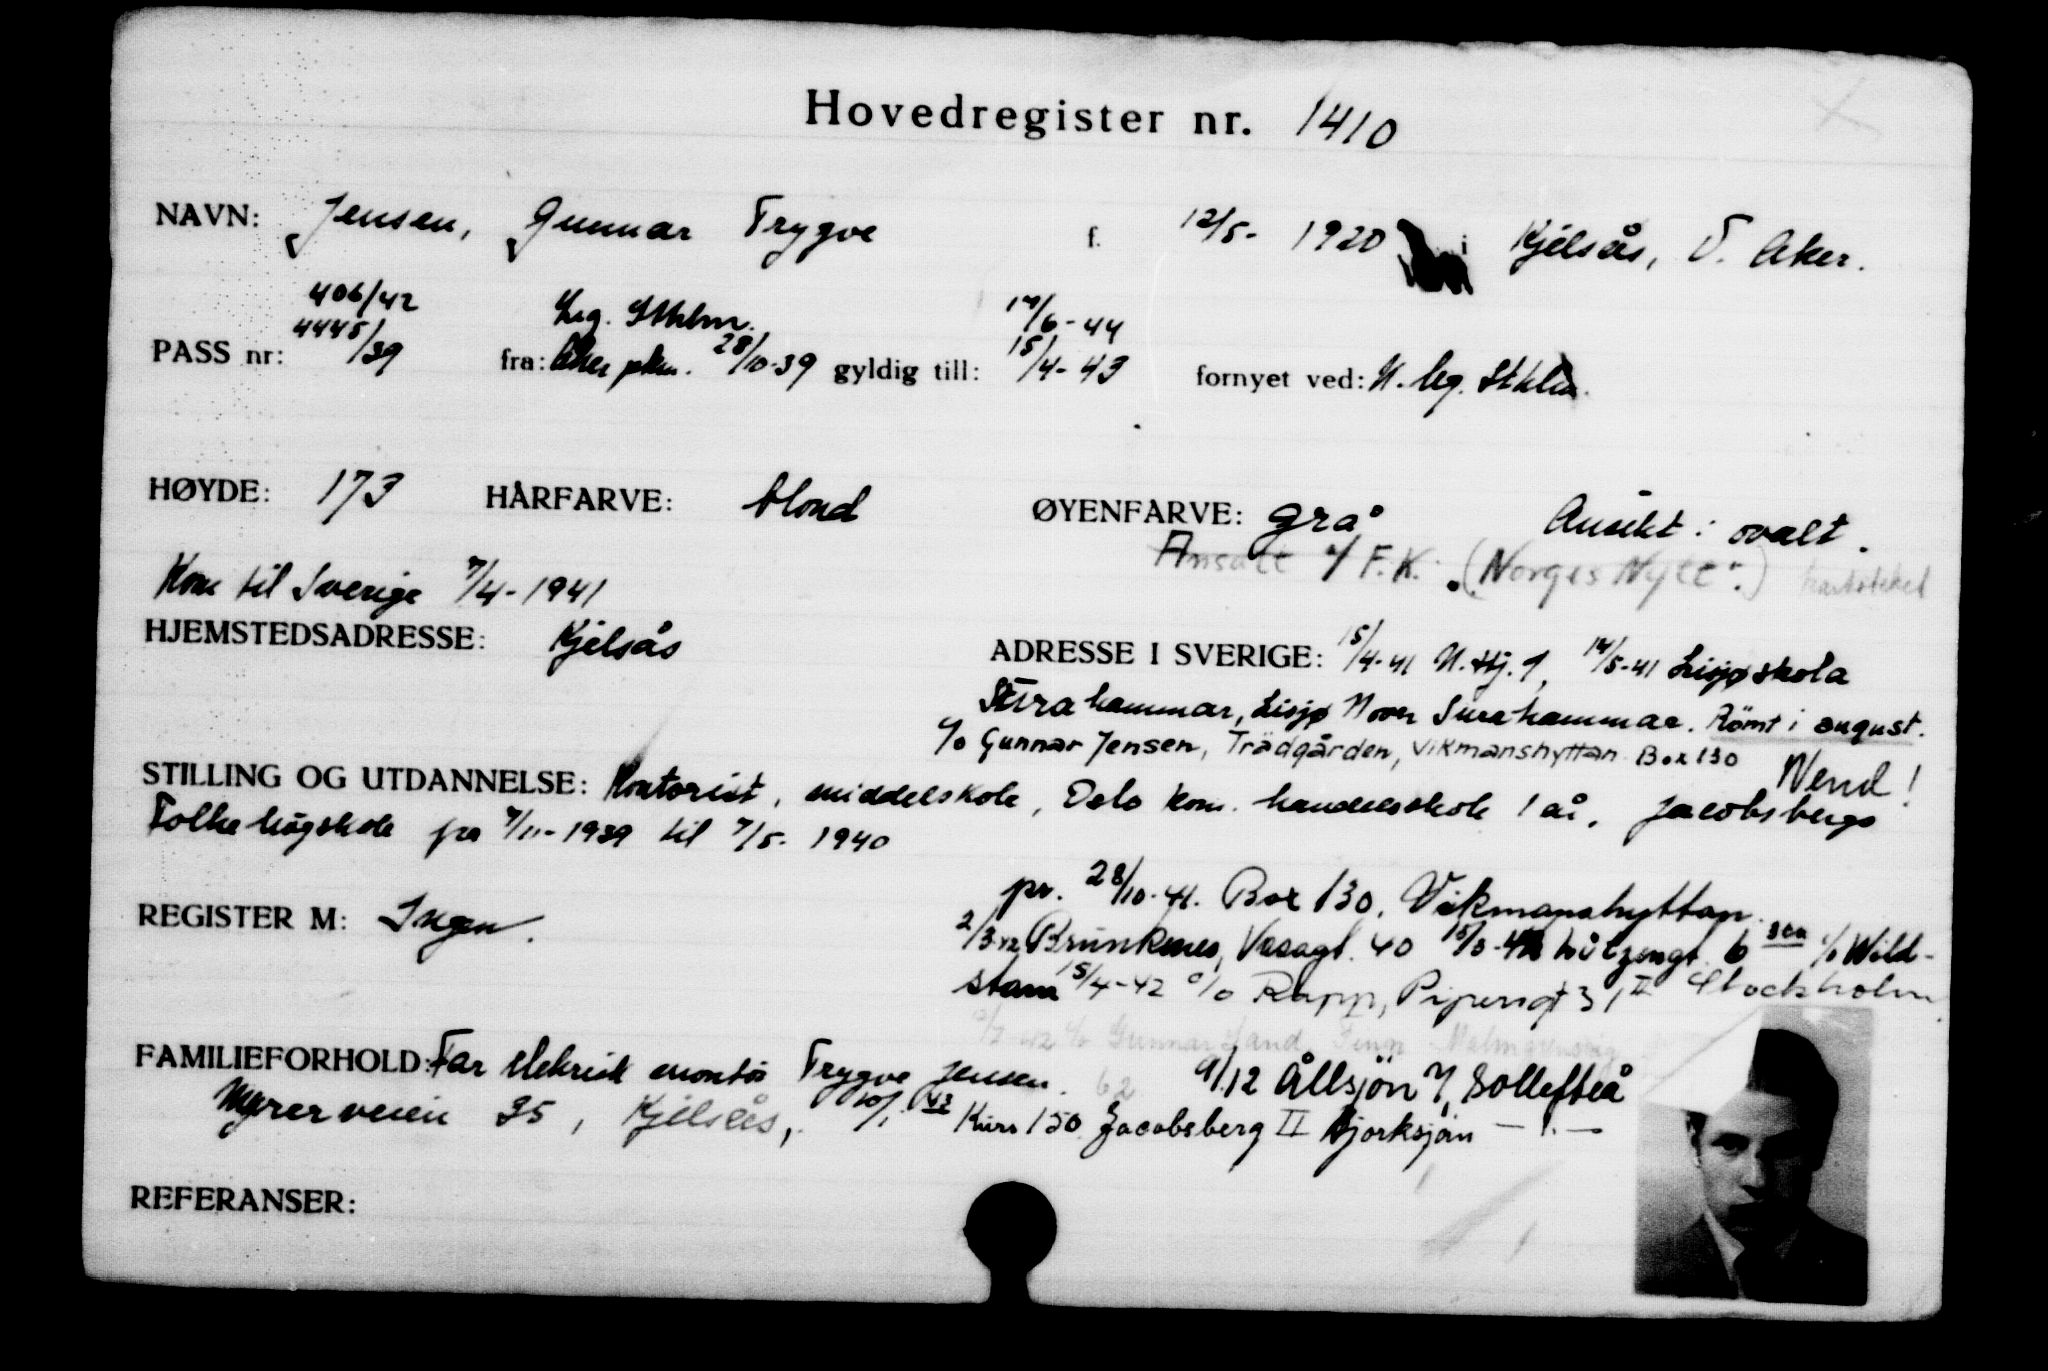 Hovedregister nr. 1410
NAVN: Jensen, Gunnar Trygve f. 12/5- 1920 i Kjelsås, V. Aker.
406/42 Leg. Sthlm. 14/6-44
PASS nr: 4445/39 fra: Aker pkm. 28/10-39 gyldig till: 15/4-43 fornyet ved: N. leg. Sthlm.
HØYDE: 173 HÅRFARVE: blond ØYENFARVE: grå Ansikt: ovalt.
Ansatt v/ F.K. ("Norges Nytt".) kartoteket
Kom til Sverige 7/4-1941
HJEMSTEDSADRESSE: Kjelsås
ADRESSE I SVERIGE: 15/4-41 N.Hj. 1, 14/5-41 Lisjø skola
Surahammar, Lisjø Norr Surahammar. Römt i august.
c/o Gunnar Jensen, Trädgården, Vikmanshyttan Box 130
Wend!
STILLING OG UTDANNELSE: Kontorist, middelskole, Oslo kom. handelsskole 1 år, Jacobsbergs
Folkehögskole fra 7/11-1939 til 7/5- 1940
pr. 28/10-41. Box 130, Vikmanshyttan.
REGISTER M: Ingen.
2/3 42 Vasagt. 40 15/3-42 6 c/o Wild-
stam 15/4-42 c/o Rapp, Pipersgt 3, II Stockholm
c/o Gunnar
FAMILIEFORHOLD: Far elektrisk montør Trygve Jensen. 62 9/12 Ållsjön 7, Sollefteå
Myrerveien 35, Kjelsås, 10/1 43 Kurs 150 Jacobsberg II Bjorksjön — " —
REFERANSER: